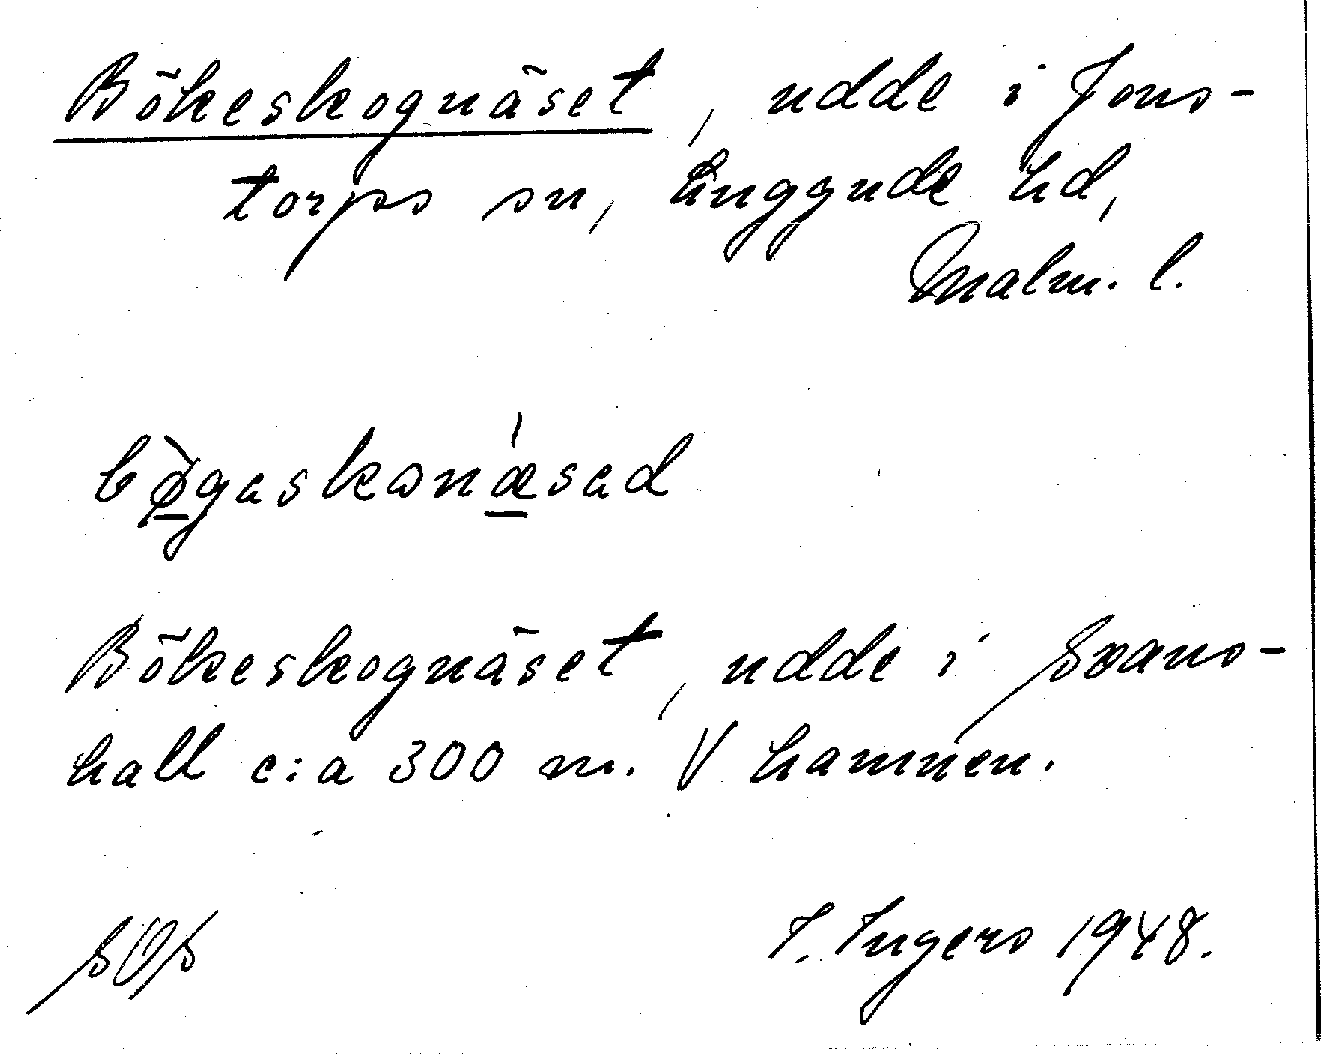 Bökeskognäset, udde i Jons-
torps sn, Luggude hd,
Malm. l.
bø̀gaskɷnǽsad
Bökeskognäset, udde i Svans-
hall c:a 300 m. V hamnen.
SOS I. Ingers 1948.